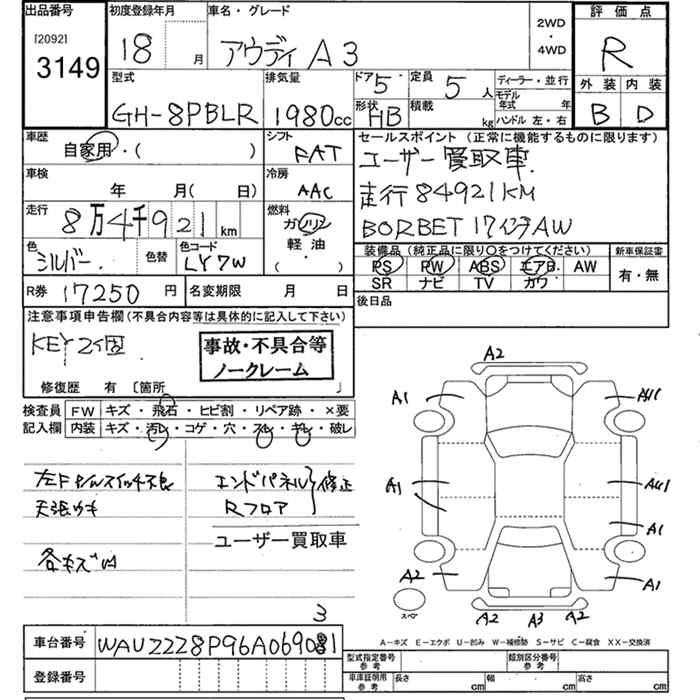 出品番号
[2092]
3149
初度登録年月
18 月
車名・グレード
アウディ A3
2WD
・
4WD
評価点
R
外装 内装
B D
型式
GH-8PBLR
排気量
1980cc
ドア 5
定員 5 人
ディーラー・並行
形状 HB
積載 kg
モデル年式 年
ハンドル 左・右
車歴
自家用・( )
シフト
FAT
車検
年 月( 日)
冷房
AAC
走行
8万4千921 km
燃料
ガソリン
軽油
( )
色
シルバー
色替
色コード
LY7W
R券 17250 円
名変期限 月 日
セールスポイント (正常に機能するものに限ります)
ユーザー買取車
走行84921KM
BORBET 17インチAW
装備品 (純正品に限り〇をつけてください)
PS PW ABS エアB AW
SR ナビ TV カワ
新車保証書
有・無
後日品
注意事項申告欄(不具合内容等は具体的に記入して下さい)
KEY2個
事故・不具合等
ノークレーム
修復歴 有 〔箇所 〕
検査員
記入欄
FW キズ・飛石・ヒビ割・リペア跡・×要
内装 キズ・汚レ・コゲ・穴・スレ・キレ・破レ
天張
各キズ
エンドパネル
Rフロア
修正
ユーザー買取車
A2
A1
A1
A1
A1
A2
A1
A2 A3 A2
スペア
A-キズ E-エクボ U-凹み W-補修跡 S-サビ C-腐食 XX-交換済
3
車台番号 WAUZZZ8P96A069081
登録番号
型式指定番号 参考
類別区分番号 参考
車庫証明用 参考
長さ cm
幅 cm
高さ cm